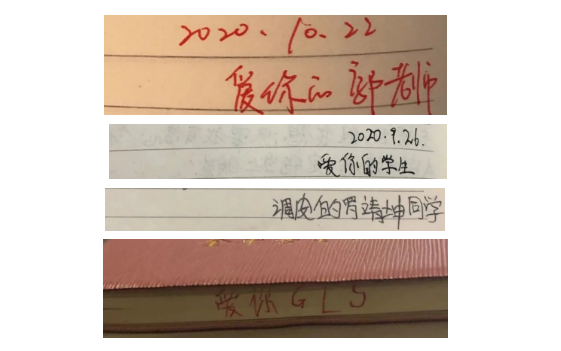 2020、10、22
爱你的郭老师
2020.9.26.
爱你的学生
调皮的罗靖坤同学
爱你GLS